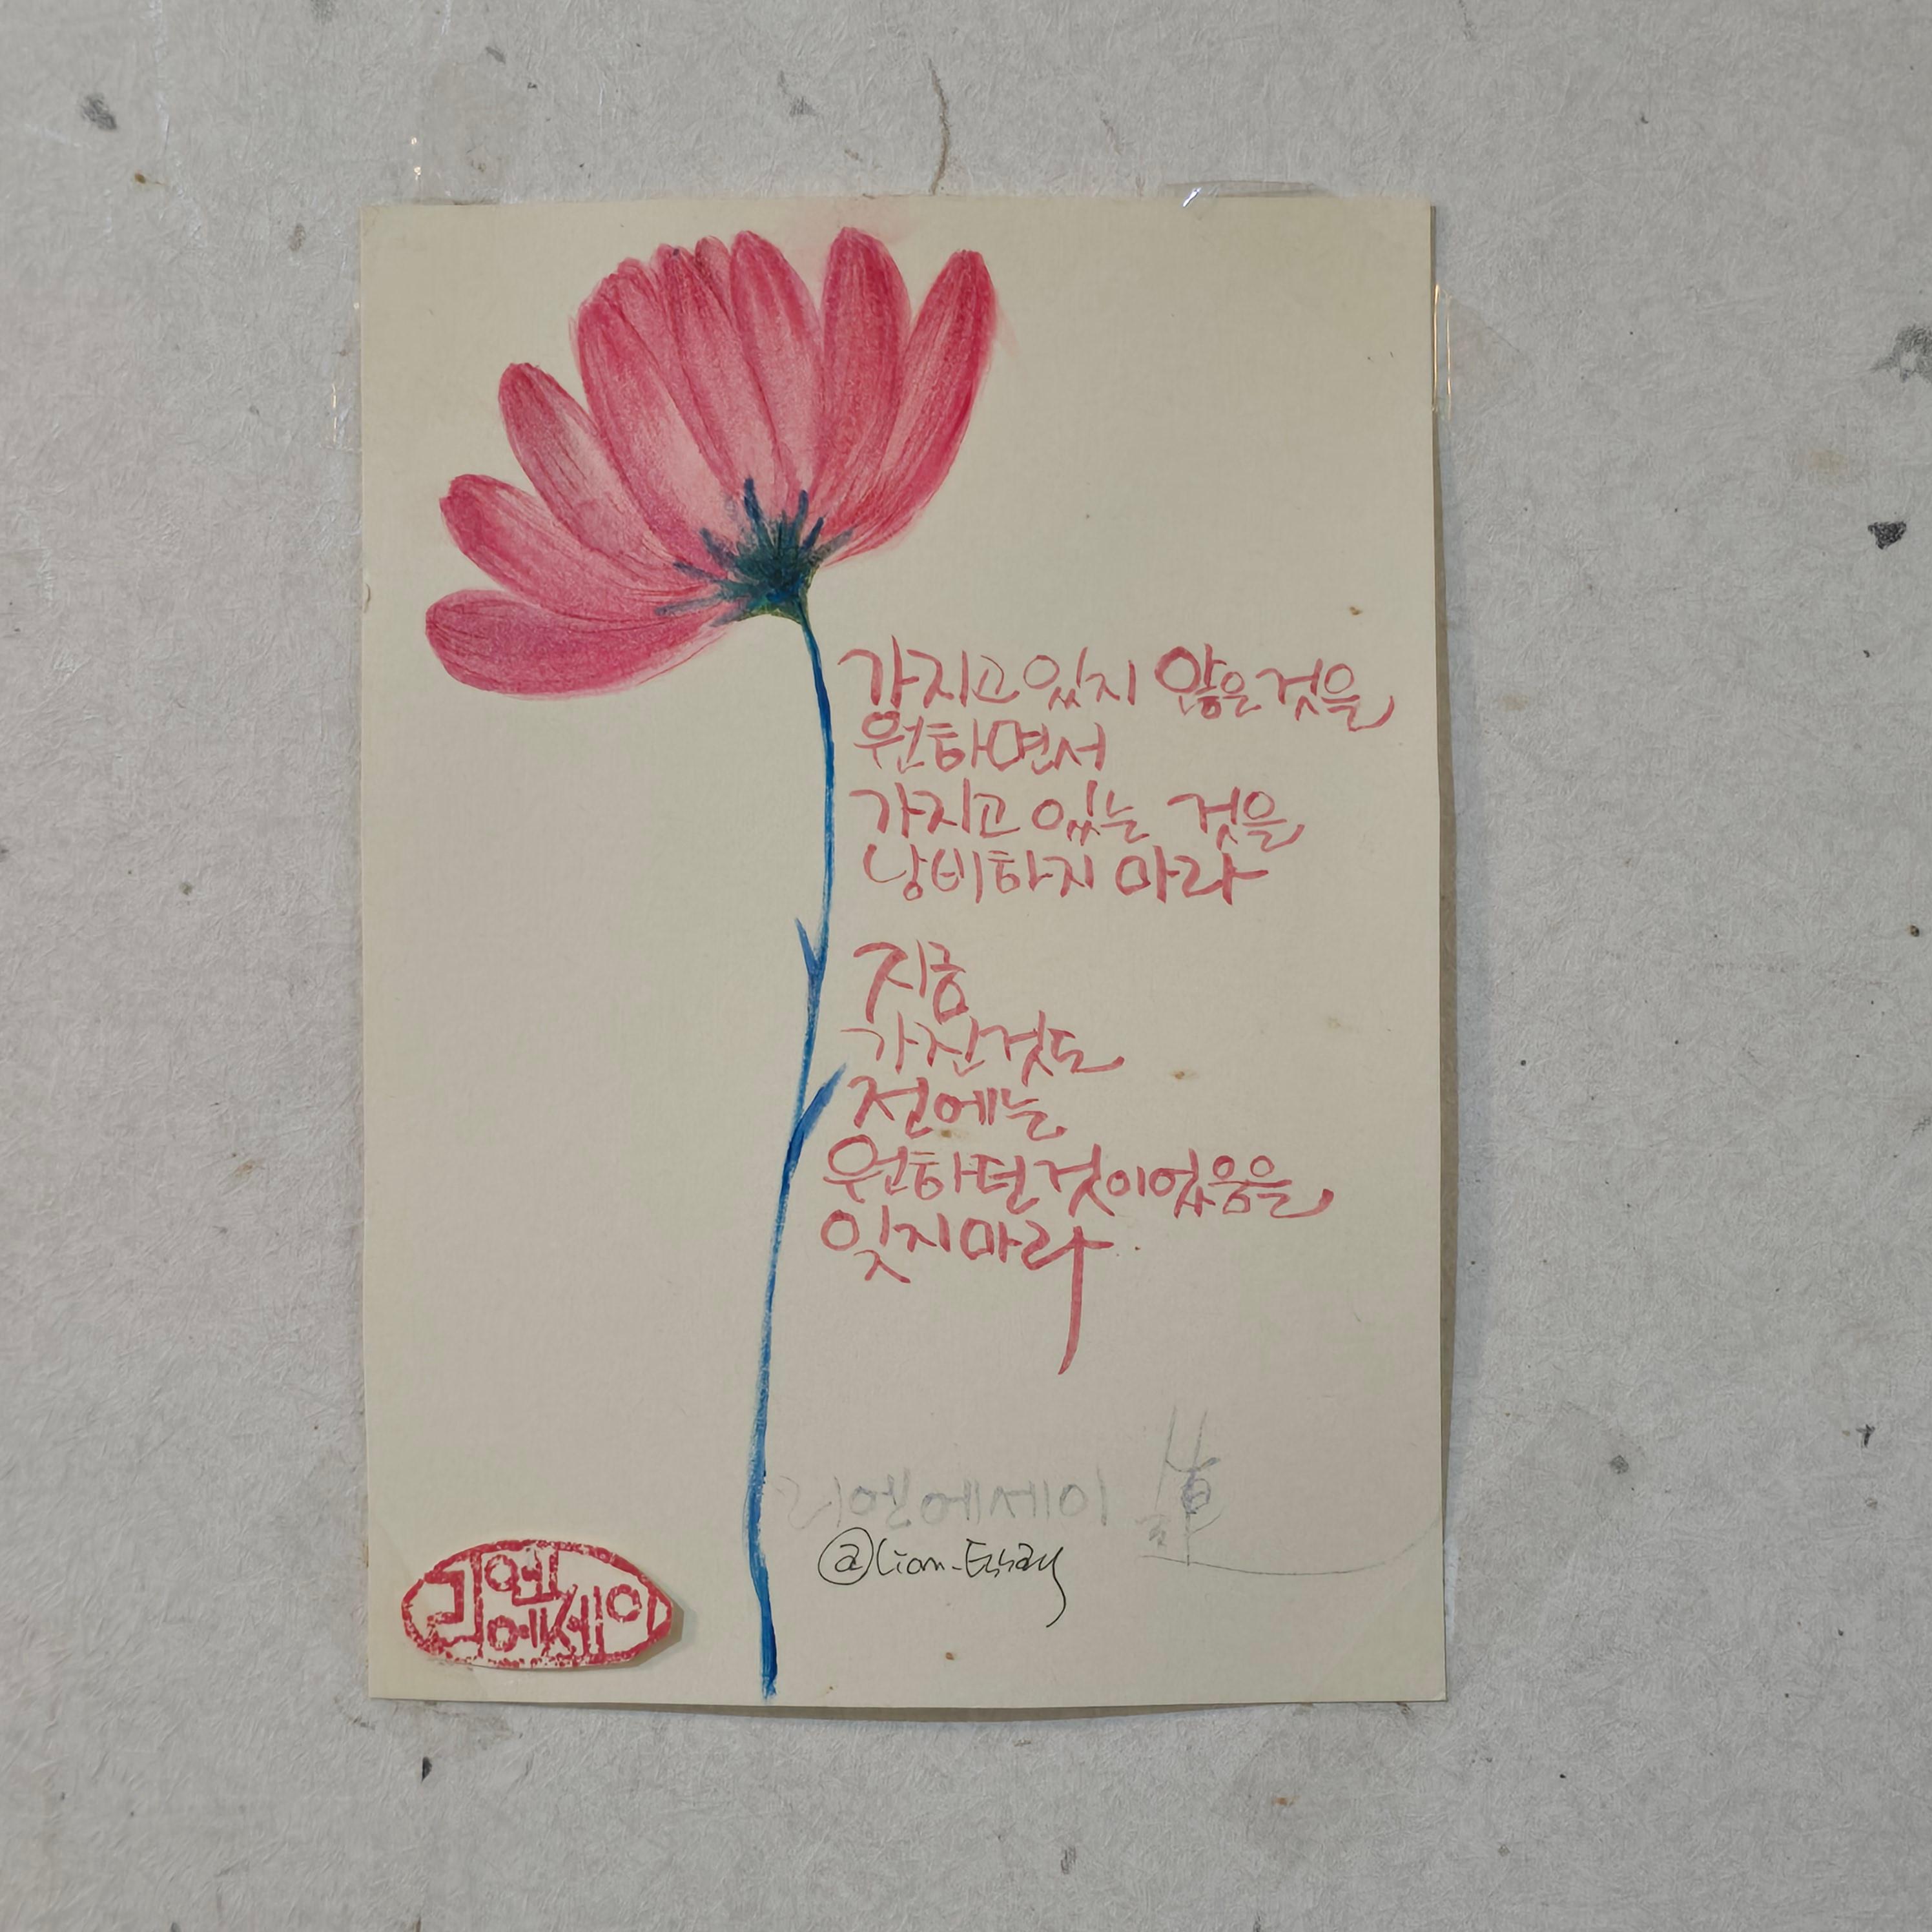 가지고 있지 않은 것을
원하면서
가지고 있는 것을
낭비하지 마라
지금
가진것도
전에는
원하던것이었음을
잊지마라
리엔에세이 蓮
@Lian-Essay
리엔
에세이